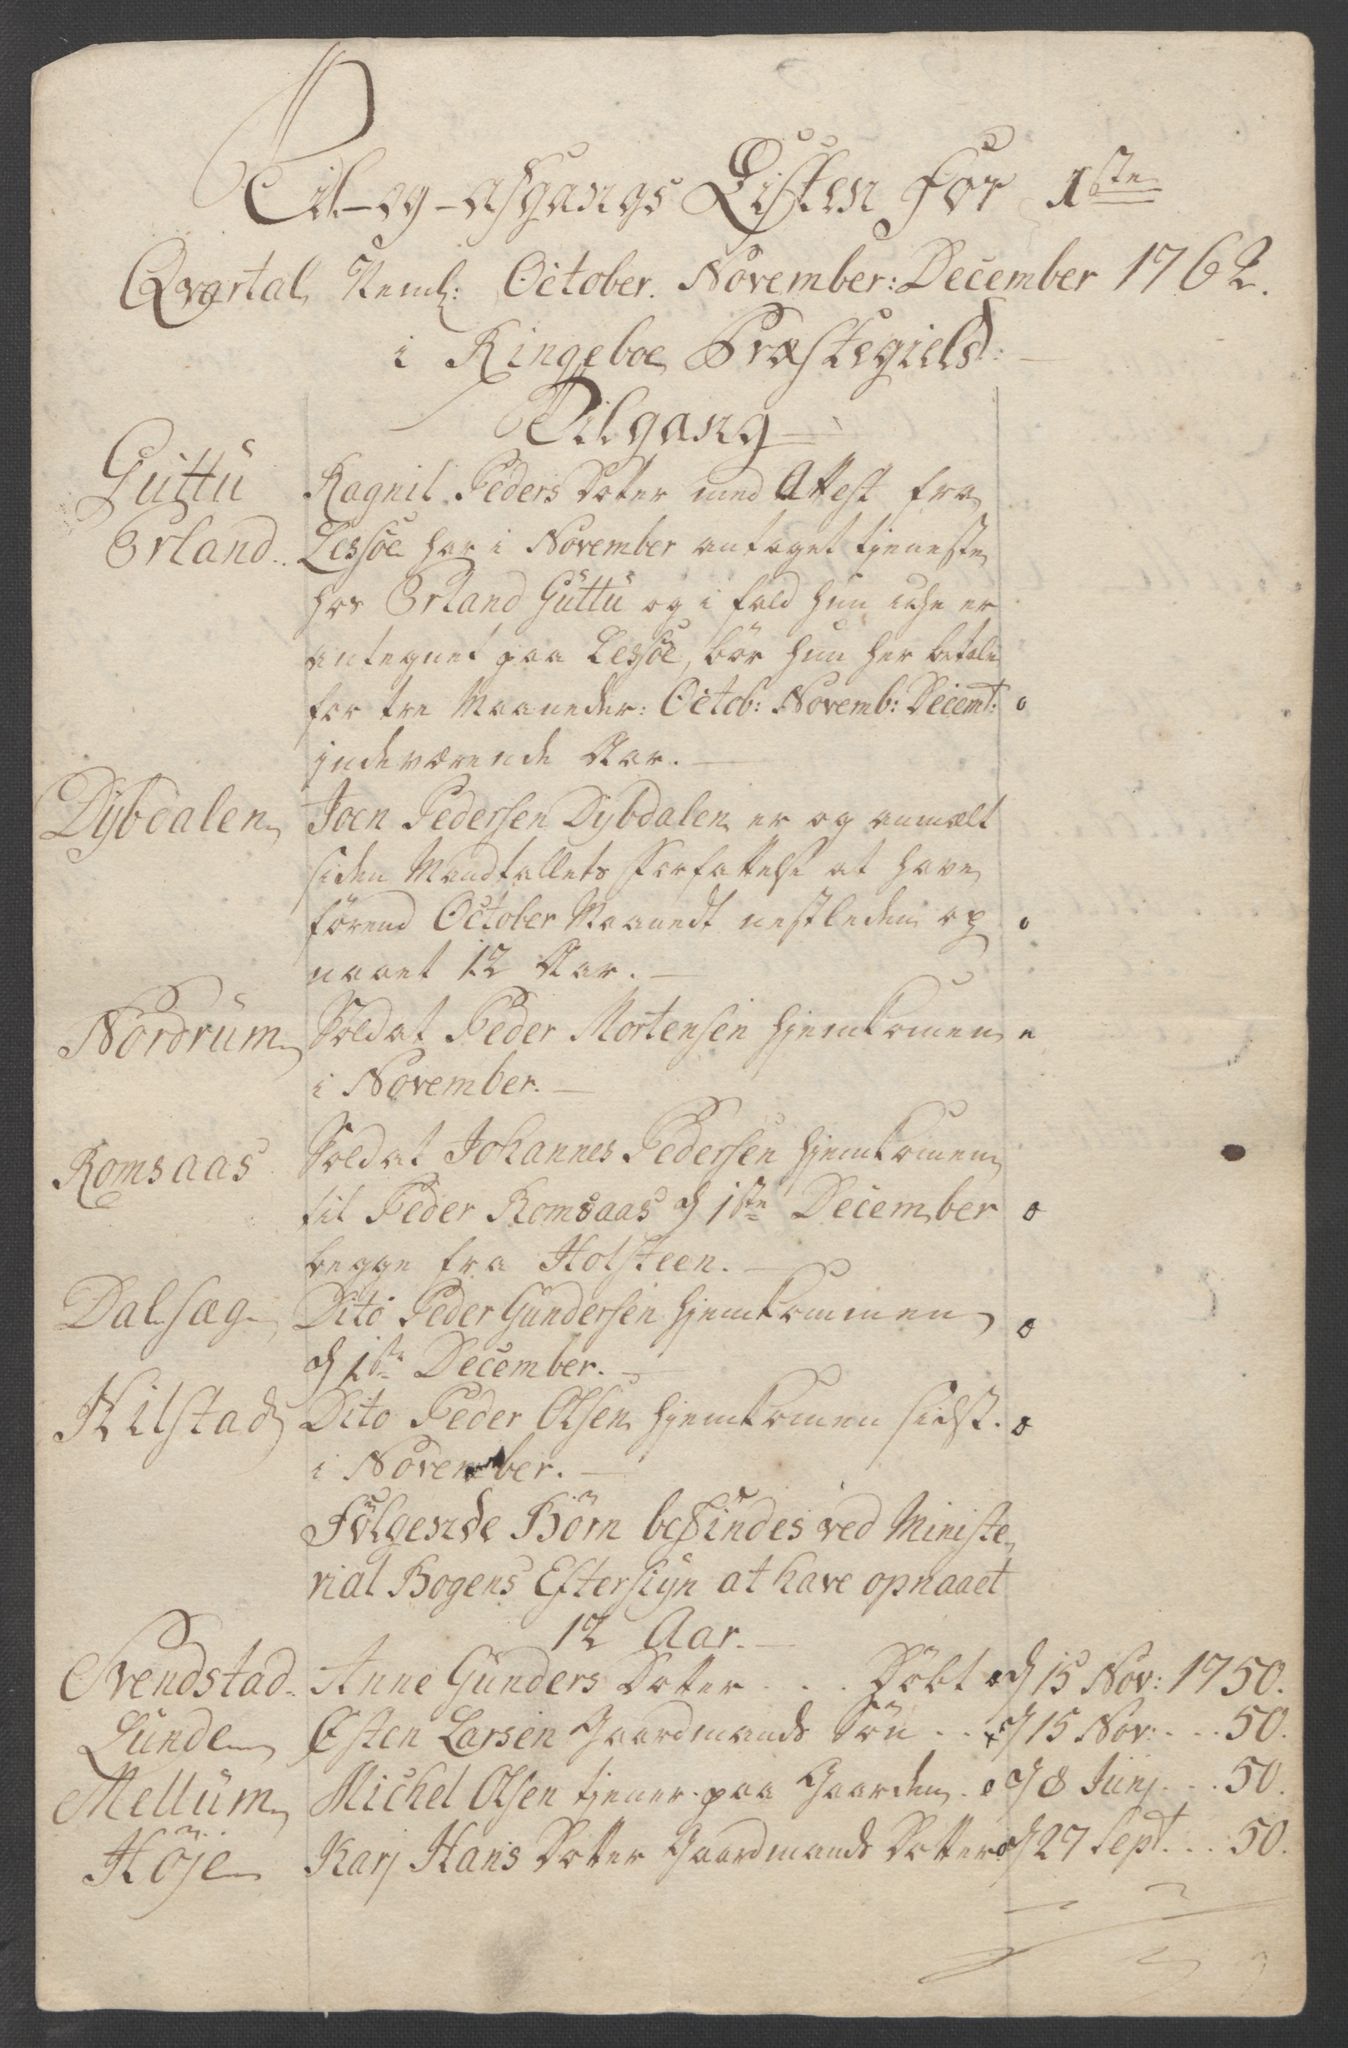 Til-og-afgangs Listen for 1ste
Qvartal Neml: October. November: December 1762.
i Ringeboe Præstegield:
Tilgang
Guttu Ragnil Peders Dotter med Attest fra
Erland.. Lessøe har i November antaget tjeneste
hos Erland Guttu og i fald hun icke er
antegnet paa Lessøe, bør hun her betale
for tre Maaneder: Octob: Novemb: Decemb: o
indeværende Aar.
Dybdalen Joen Pedersen Dybdalen er og anmælt
siden Mandtallets Forfattelse at have
førend October Maanedt nestleden op o
naaet 12 Aar.
Nordrum Soldat Peder Mortensen hjemkomen
i November.
Romsaas Soldat Johannes Pedersen hjemkomen
til Peder Romsaas d 1ste December o
begge fra Holsteen.
Dalsæg Dito Peder Gundersen hjemkommen o
d 1ste December.
Kilstad Dito Peder Olsen hjemkomen sidst. o
i November.
Følgende Børn befindes ved Ministe
rial Bogens Eftersiyn at have opnaaet
12 Aar.
Svendstad. Anne Gunders Dotter . . . Døbt d 15 Nov: 1750.
Lunde Esten Larsen Gaardmands Søn . . d 15 Nov: . . 50.
Mellum Michel Olsen tjener paa Gaarden . o d 8 Junj . . 50.
Høje Karj Hans Dotter Gaardmands Dotter d 27 Sept. . . 50.